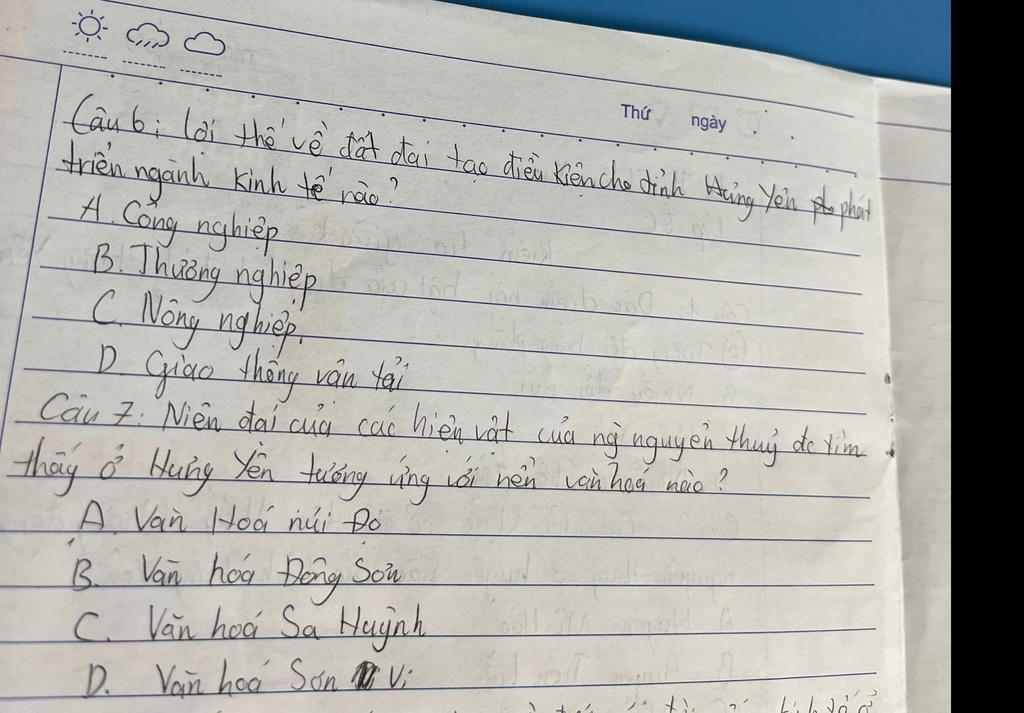 Thứ ngày
Câu 6: Lợi thế về đất đai tạo điều kiện cho tỉnh Hưng Yên phát
triển ngành kinh tế nào?
A. Công nghiệp
B. Thương nghiệp
C. Nông nghiệp.
D. Giao thông vận tải
Câu 7: Niên đại của các hiện vật của ng nguyên thuỷ đc tìm
thấy ở Hưng Yên tương ứng với nền văn hoá nào?
A. Văn Hoá núi Đọ
B. Văn hóa Đông Sơn
C. Văn hoá Sa Huỳnh
D. Văn hoá Sơn Vi